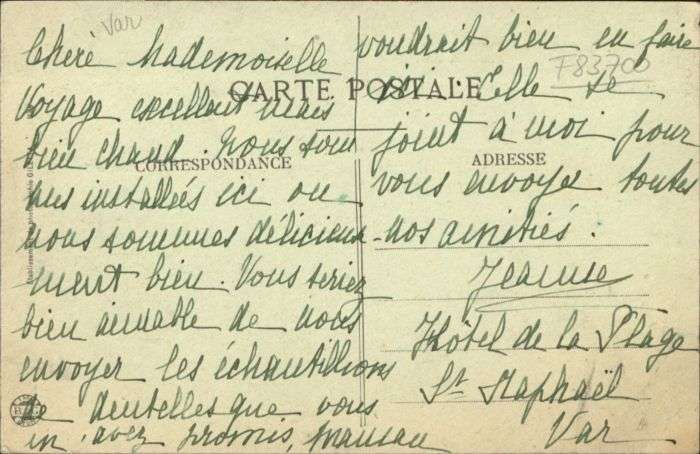 Var
F83700
CARTE POSTALE
CORRESPONDANCE
ADRESSE
Chère Mademoiselle
Voyage excellent mais
bien chaud. Nous som
mes installées ici où
nous sommes délicieuse
ment bien. Vous seriez
bien aimable de nous
envoyer les échantillons
de dentelles que vous
m'avez promis, maman
voudrait bien en faire
ici. Elle se
joint à moi pour
vous envoyer toutes
nos amitiés.
Jeanne
Hôtel de la Plage
St Raphaël
Var